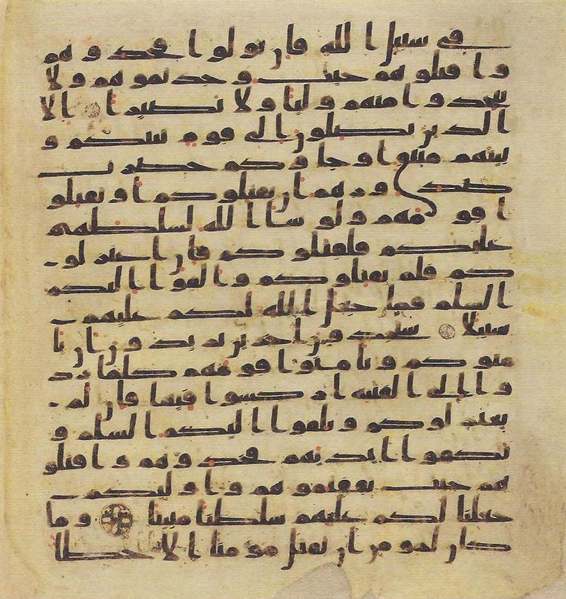 في سبيل الله فان تولوا فخذوهم
واقتلوهم حيث وجدتموهم ولا
تتخذوا منهم وليا ولا نصيرا الا
الذين يصلون الى قوم بينكم و
بينهم ميثق او جاوكم حصرت
صدورهم ان يقتلوكم او يقتلو
ا قومهم ولو شا الله لسلطهم
عليكم فلقتلوكم فان اعتزلو
كم فلم يقتلوكم والقوا اليكم
السلم فما جعل الله لكم عليهم
سبيلا ستجدون اخرين يريدون ان يا
منوكم ويامنوا قومهم كلما رد
وا الى الفتنه اركسوا فيها فان لم
يعتزلوكم ويلقوا اليكم السلم و
يكفوا ايديهم فخذوهم واقتلو
هم حيث ثقفتموهم واوليكم
جعلنا لكم عليهم سلطنا مبينا وما
كان لمومن ان يقتل مومنا الا خطا